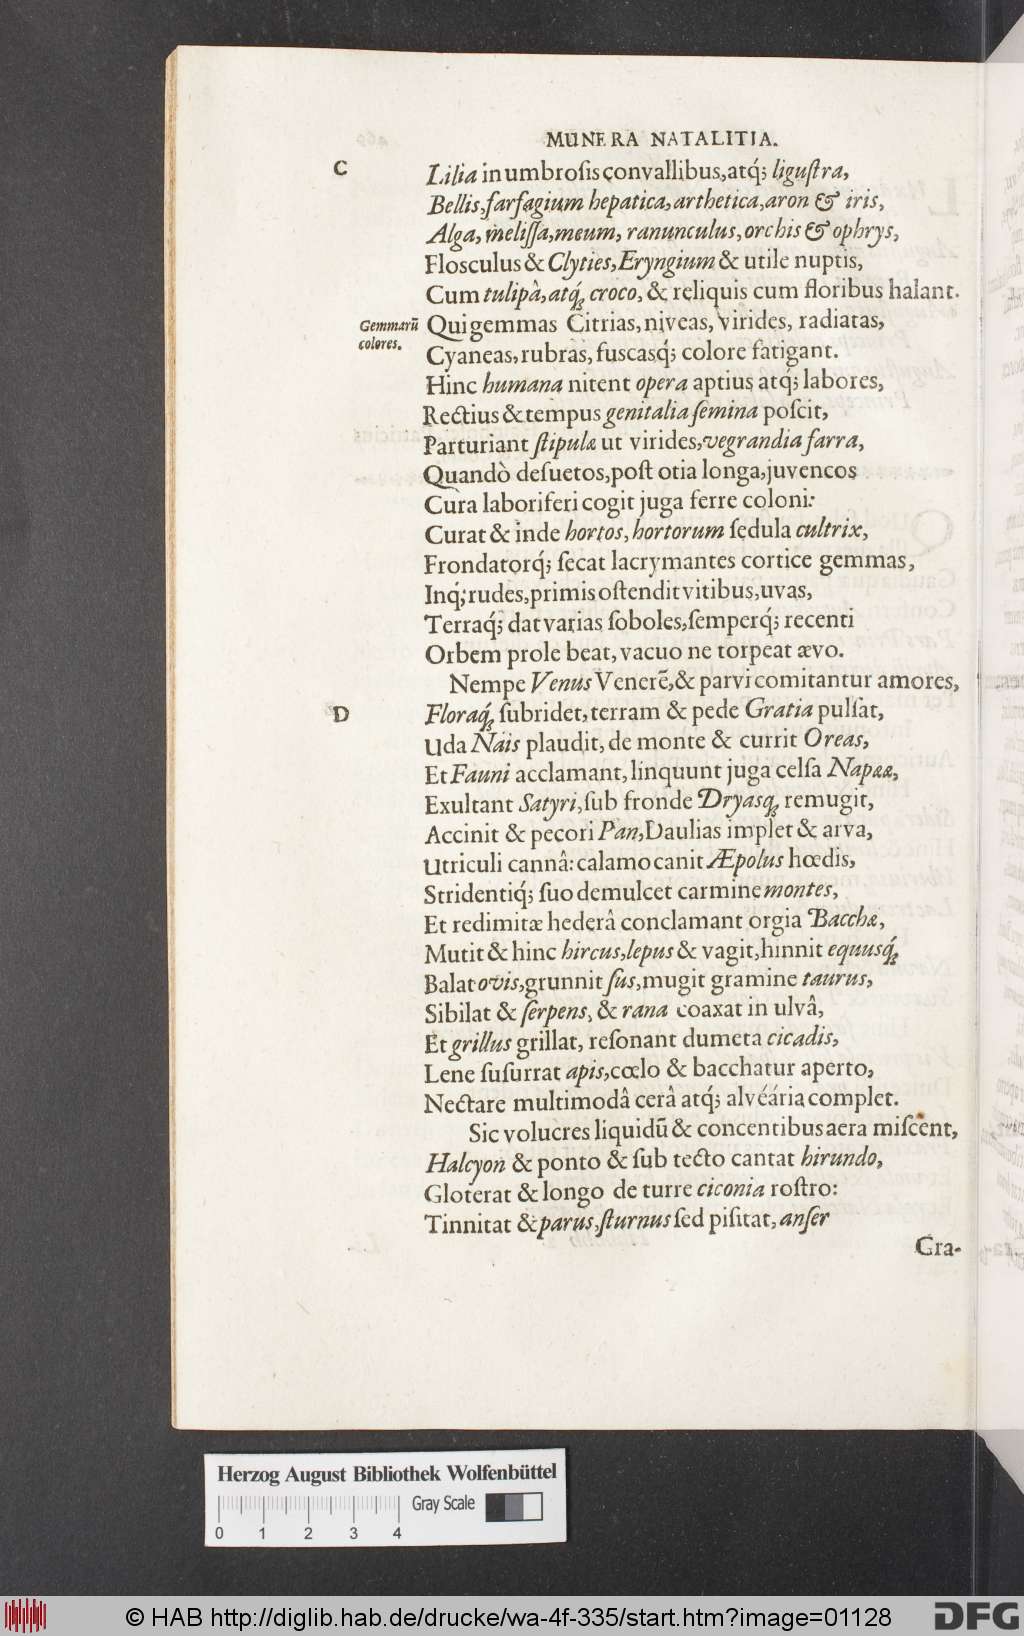 MUNERA NATALITIA.
C
Lilia in umbrosis convallibus, atq́; ligustra,
Bellis, farfagium hepatica, arthetica, aron & iris,
Alga, melissa, meum, ranunculus, orchis & ophrys,
Flosculus & Clyties, Eryngium & utile nuptis,
Cum tulipâ, atq́; croco, & reliquis cum floribus halant.
Gemmarũ
colores.
Qui gemmas Citrias, niveas, virides, radiatas,
Cyaneas, rubras, fuscasq́; colore fatigant.
Hinc humana nitent opera aptius atq́; labores,
Rectius & tempus genitalia semina poscit,
Parturiant stipulæ ut virides, vegrandia farra,
Quandò desuetos, post otia longa, juvencos
Cura laboriferi cogit juga ferre coloni:
Curat & inde hortos, hortorum sedula cultrix,
Frondatorq́; secat lacrymantes cortice gemmas,
Inq́; rudes, primis ostendit vitibus, uvas,
Terraq́; dat varias soboles, semperq́; recenti
Orbem prole beat, vacuo ne torpeat ævo.
Nempe Venus Venerẽ, & parvi comitantur amores,
D
Floraq́; subridet, terram & pede Gratia pulsat,
Uda Nais plaudit, de monte & currit Oreas,
Et Fauni acclamant, linquunt juga celsa Napææ,
Exultant Satyri, sub fronde Dryasq́; remugit,
Accinit & pecori Pan, Daulias implet & arva,
Utriculi cannâ: calamo canit Æpolus hœdis,
Stridentiq́; suo demulcet carmine montes,
Et redimitæ hederâ conclamant orgia Bacchæ,
Mutit & hinc hircus, lepus & vagit, hinnit equusq́;
Balat ovis, grunnit sus, mugit gramine taurus,
Sibilat & serpens, & rana coaxat in ulvâ,
Et grillus grillat, resonant dumeta cicadis,
Lene susurrat apis, cœlo & bacchatur aperto,
Nectare multimodâ cerâ atq́; alvéária complet.
Sic volucres liquidũ & concentibus aera miscent,
Halcyon & ponto & sub tecto cantat hirundo,
Gloterat & longo de turre ciconia rostro:
Tinnitat & parus, sturnus sed pisitat, anser
Gra-
Herzog August Bibliothek Wolfenbüttel
Gray Scale
0 1 2 3 4
© HAB http://diglib.hab.de/drucke/wa-4f-335/start.htm?image=01128
DFG